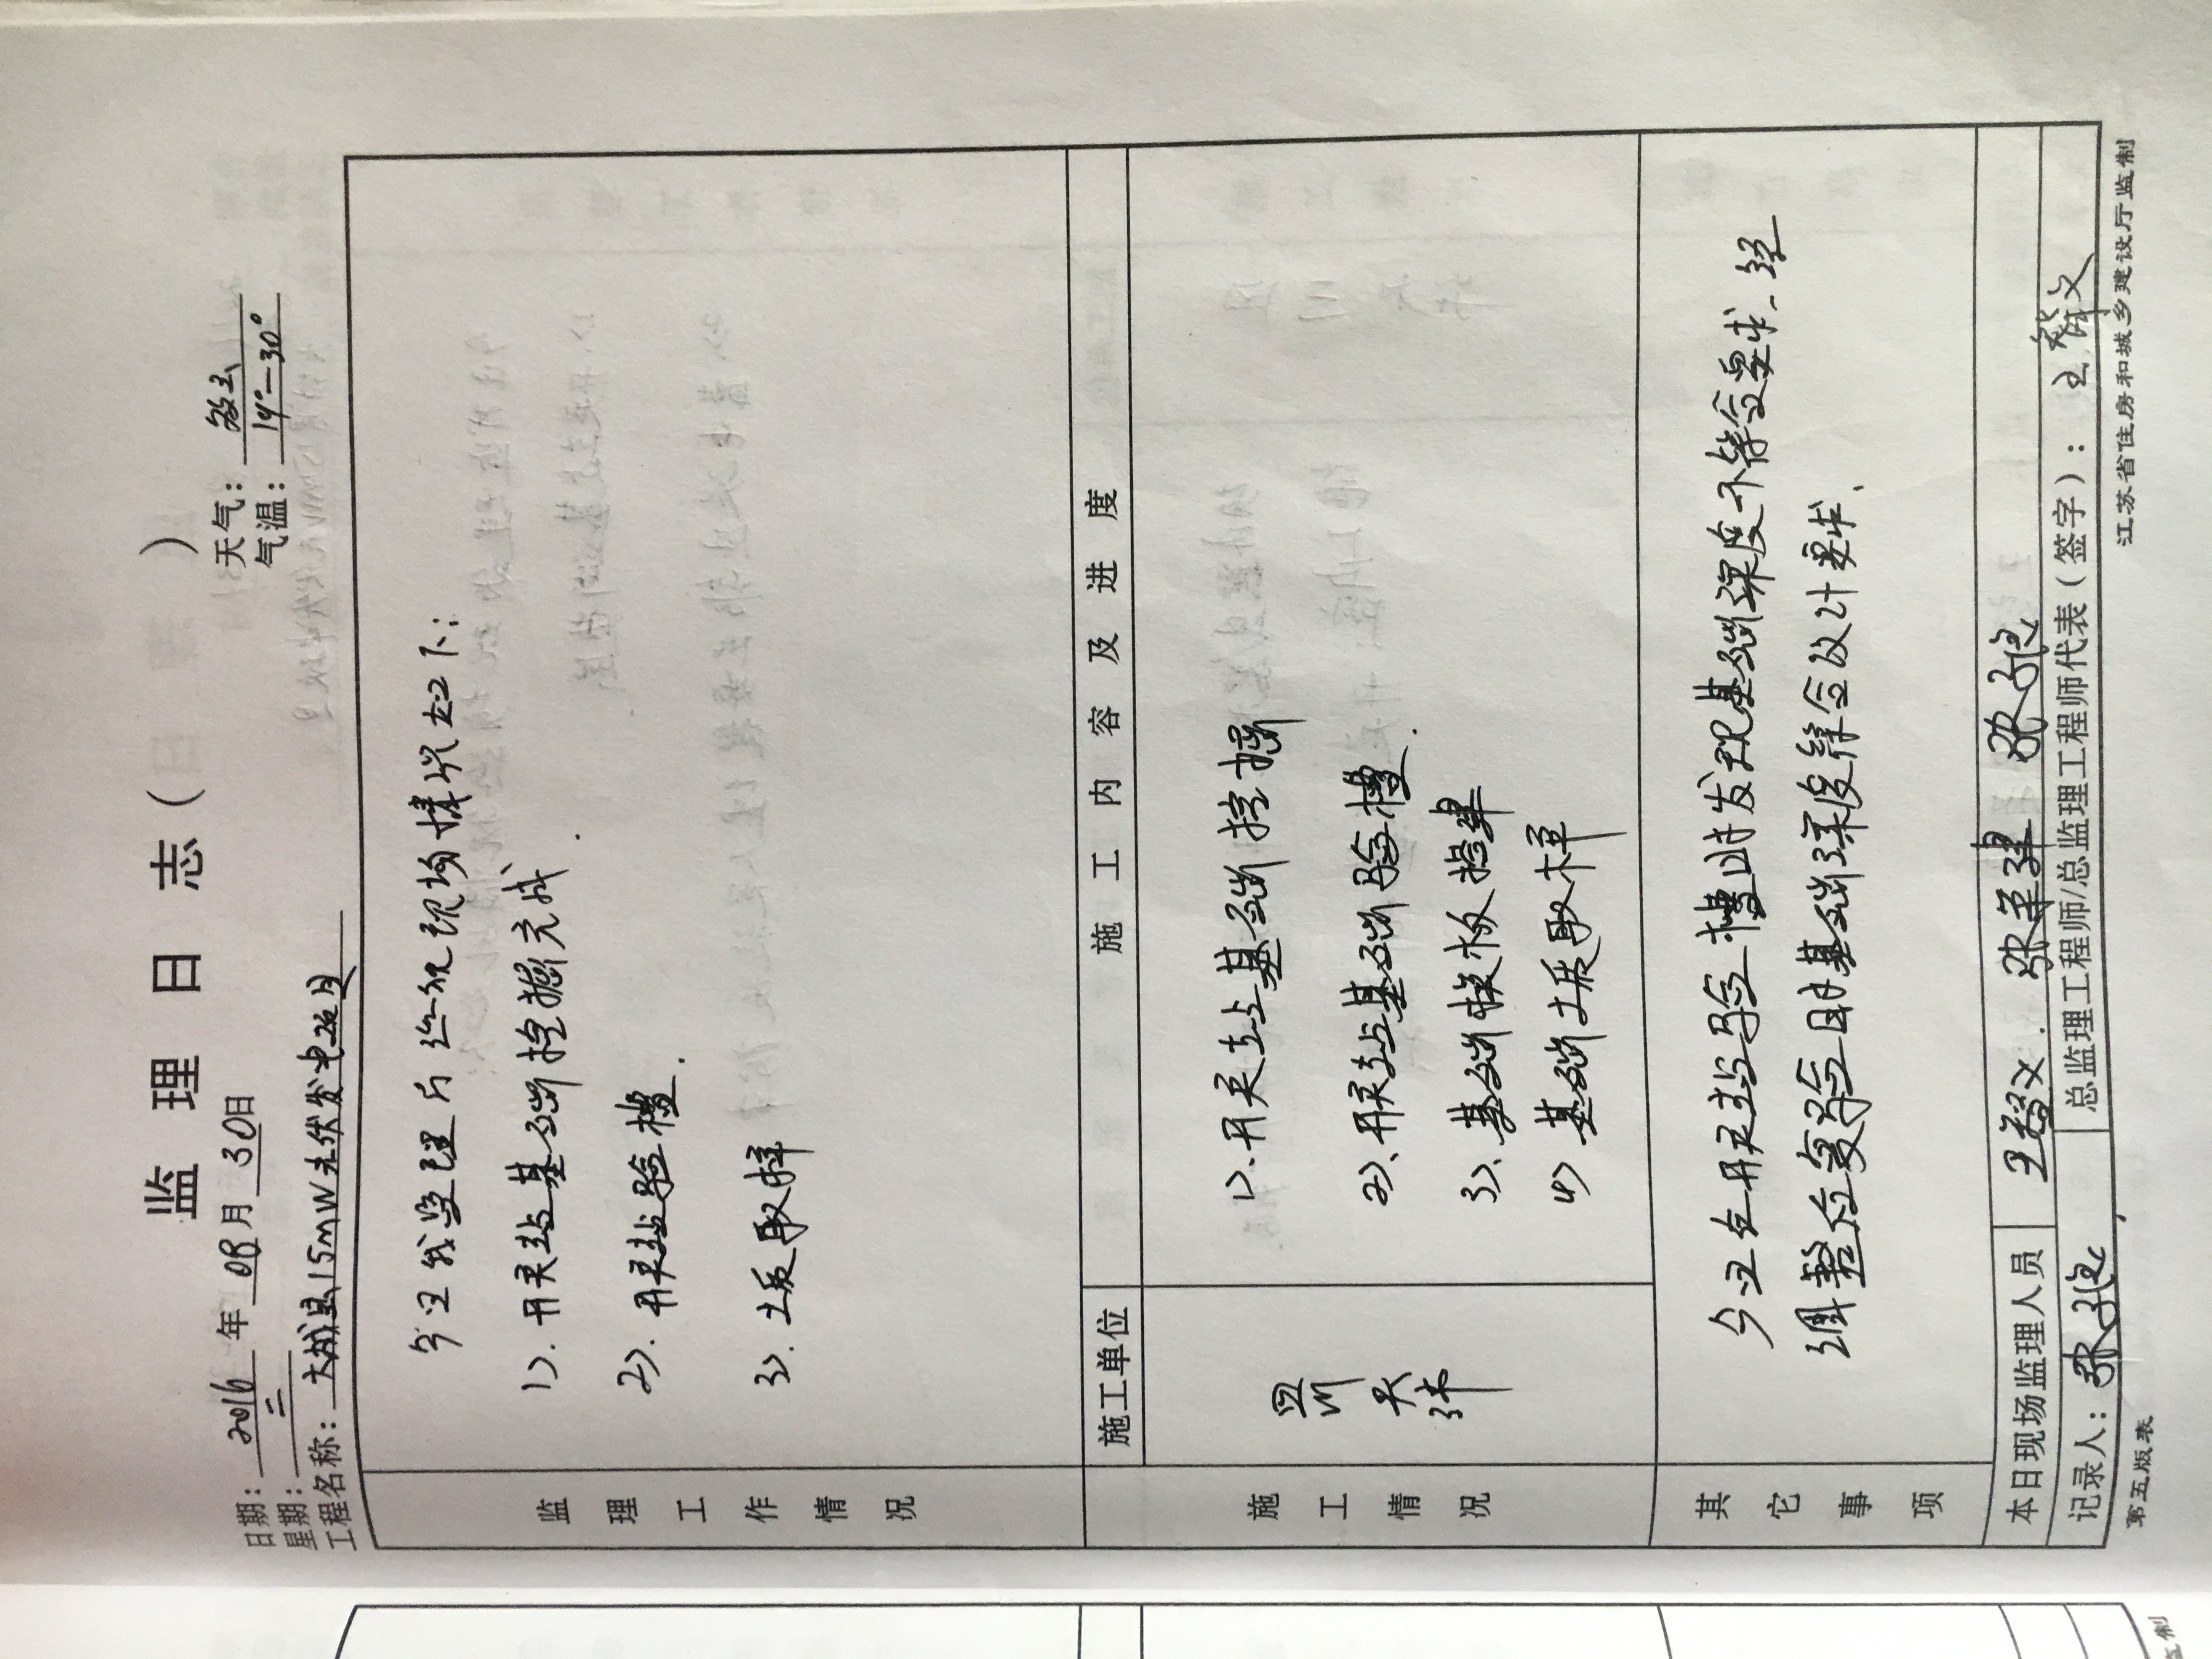 监理日志（　　　　）
日期：2016年08月30日
天气：多云
星期：二
气温：19°-30°
工程名称：大城县15mW光伏发电项目
监理工作情况
今日我监理方巡视现场情况如下：
1）.开关站基础挖掘完成.
2）.开关站验槽.
3）.土质取样
施工情况
施工单位
施工内容及进度
四川天
1）.开关站基础挖掘
2）、开关站基础验槽.
3）、基础模板搭建
4）基础土质取样
其它事项
今日在开关站验槽时发现基础深度不符合要求、经
调整后复验目前基础深度符合设计要求、
本日现场监理人员
记录人：
总监理工程师/总监理工程师代表（签字）：
第五版表
江苏省住房和城乡建设厅监制
监制